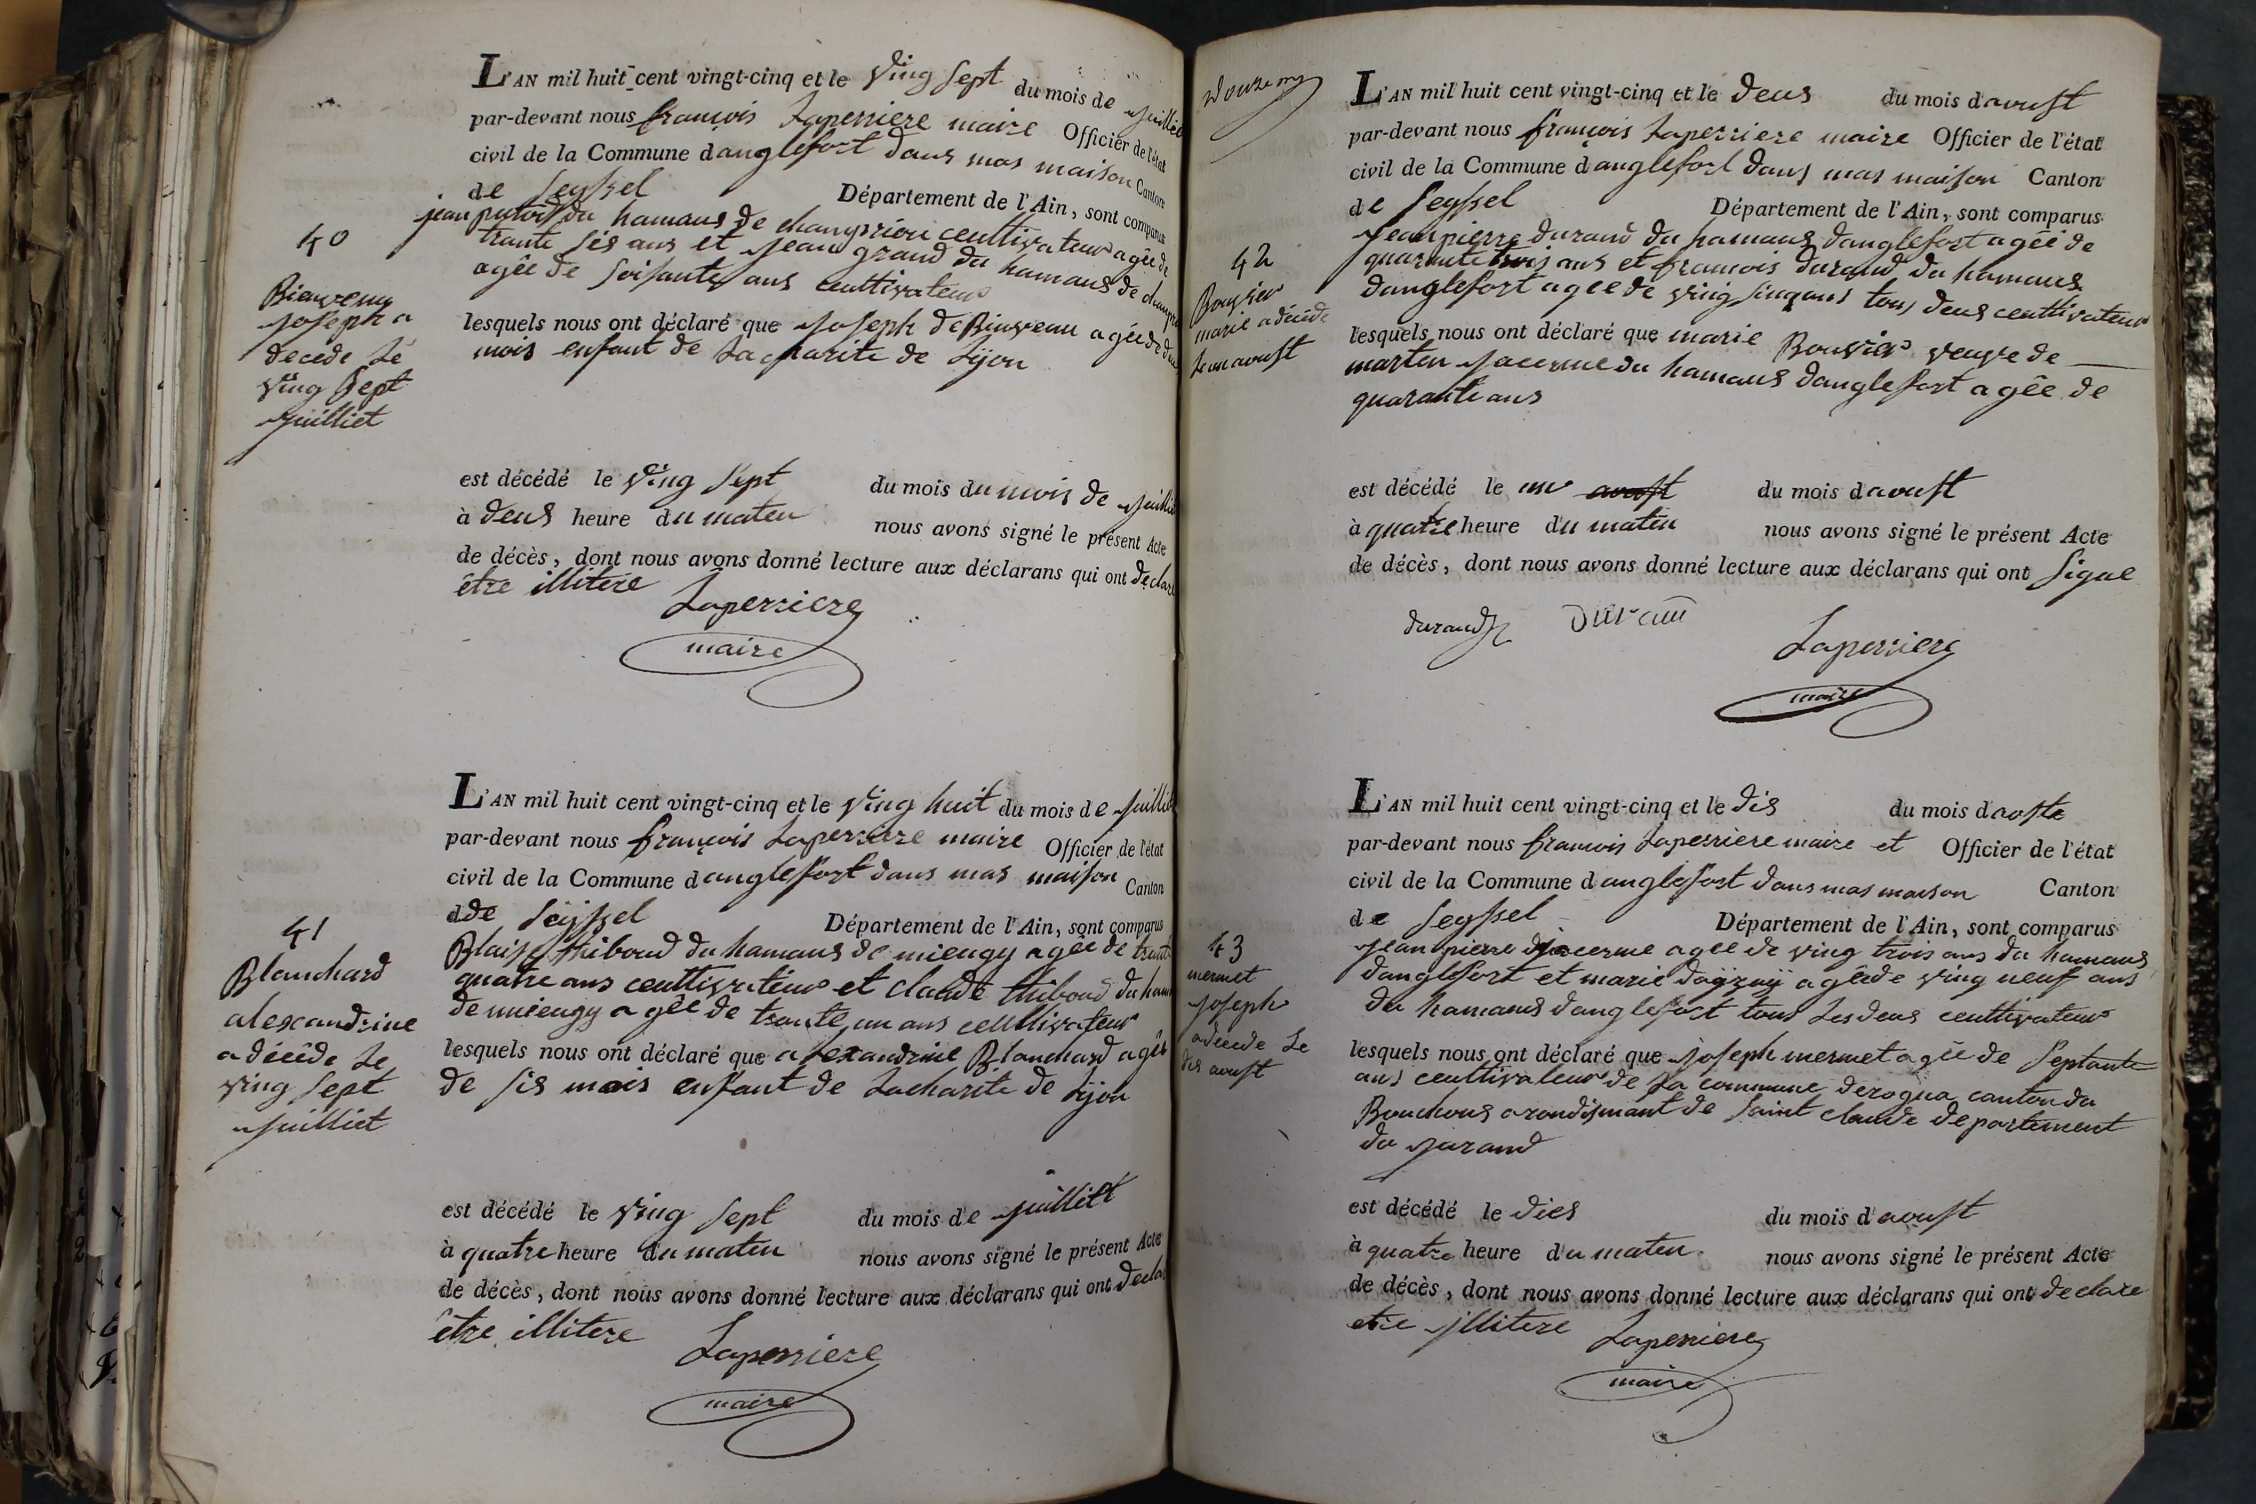 L'AN mil huit cent vingt-cinq et le ving sept du mois de juilliet
par-devant nous françois Laperriere maire Officier de l'état
civil de la Commune d anglefort dans mas maison Canton
de Seyssel Département de l'Ain, sont comparus
jean du hamaus de cheultivateur agée de
trante sis ans et jean grand du hamaus de
agêe de soisante ans ceultivateur
lesquels nous ont déclaré que joseph de Bienvenu agée de deus
mois enfant de La charite de Lyon
40
Bienvenu
joseph a
décédé Le
ving sept
juilliet
est décédé le ving sept du mois du mois de juilliet
à deus heure du maten nous avons signé le présent Acte
de décès, dont nous avons donné lecture aux déclarans qui ont déclare
être illitere
Laperriere
maire
L'AN mil huit cent vingt-cinq et le ving huit du mois de juilliet
par-devant nous françois Laperriere maire Officier de l'état
civil de la Commune d anglefort dans mas maison Canton
d de Seyssel Département de l'Ain, sont comparus
Blaise thiboud du hamaus de mieugy agêe de trante
quatre ans ceultivateur et claude thiboud du hamaus
de mieugy agêe de trante un ans ceultivateur
lesquels nous ont déclaré que alexandrine Blanchard agêe
de sis mois enfant de Lacharite de Lyon
41
Blanchard
alexandrine
a décêde Le
ving sept
juilliet
est décédé le ving sept du mois de juilliet
à quatre heure du maten nous avons signé le présent Acte
de décès, dont nous avons donné lecture aux déclarans qui ont declare
être illitere
Laperriere
maire
L'AN mil huit cent vingt-cinq et le deus du mois d aoust
par-devant nous françois Laperriere maire Officier de l'état
civil de la Commune d anglefort dans mas maison Canton
de Seyssel Département de l'Ain, sont comparus
jean pierre durand du hamaus d'anglefort agée de
quarante trois ans et francois durand du hamaus
danglefort agee de ving sinq ans tous deus ceultivateur
lesquels nous ont déclaré que marie Bouvier veuve de
marten jacerme du hamaus danglefort agêe de
quarante ans
42
Bouvier
marie a décéde
Le un aoust
est décédé le un aoust du mois d aoust
à quatre heure du maten nous avons signé le présent Acte
de décès, dont nous avons donné lecture aux déclarans qui ont signe
durand durand
Laperriere
maire
L'AN mil huit cent vingt-cinq et le dis du mois d aoste
par-devant nous francois Laperriere maire et Officier de l'état
civil de la Commune d anglefort dans mas maison Canton
de Seyssel Département de l'Ain, sont comparus
jean pierre jacerme agee de ving trois ans du hamaus
danglefort et marie agêe de ving neuf ans
du hamaus danglefort tous Les deus ceultivateur
lesquels nous ont déclaré que joseph mermet agée de septante
ans ceultivateur de La commune derogna canton du
Bouchous arondismant de saint claude departement
du jurand
43
mermet
joseph
a décede Le
dis aoust
est décédé le dies du mois d'aoust
à quatre heure du maten nous avons signé le présent Acte
de décès, dont nous avons donné lecture aux déclarans qui ont declare
etre illitere
Laperriere
maire